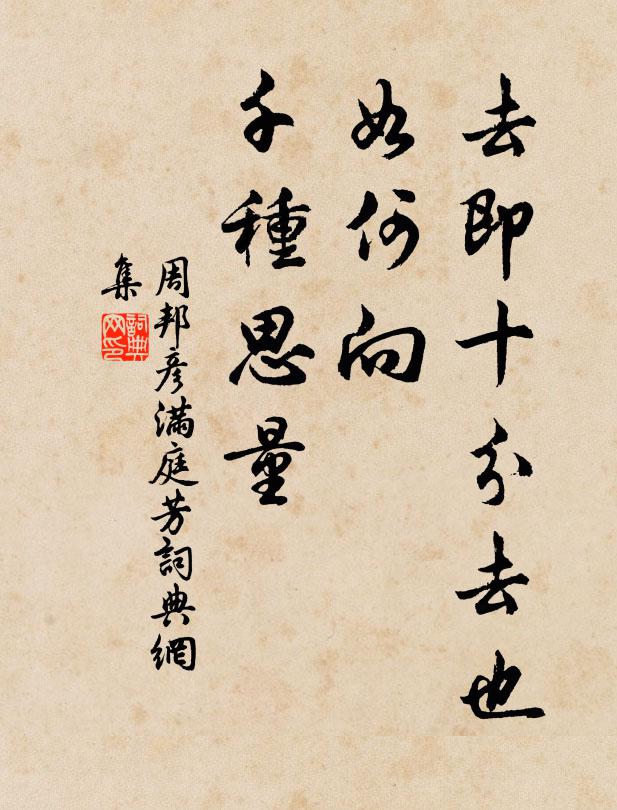 去即十分去也
如何向
千種思量
周邦彥滿庭芳詞典網
集
詞典
网印